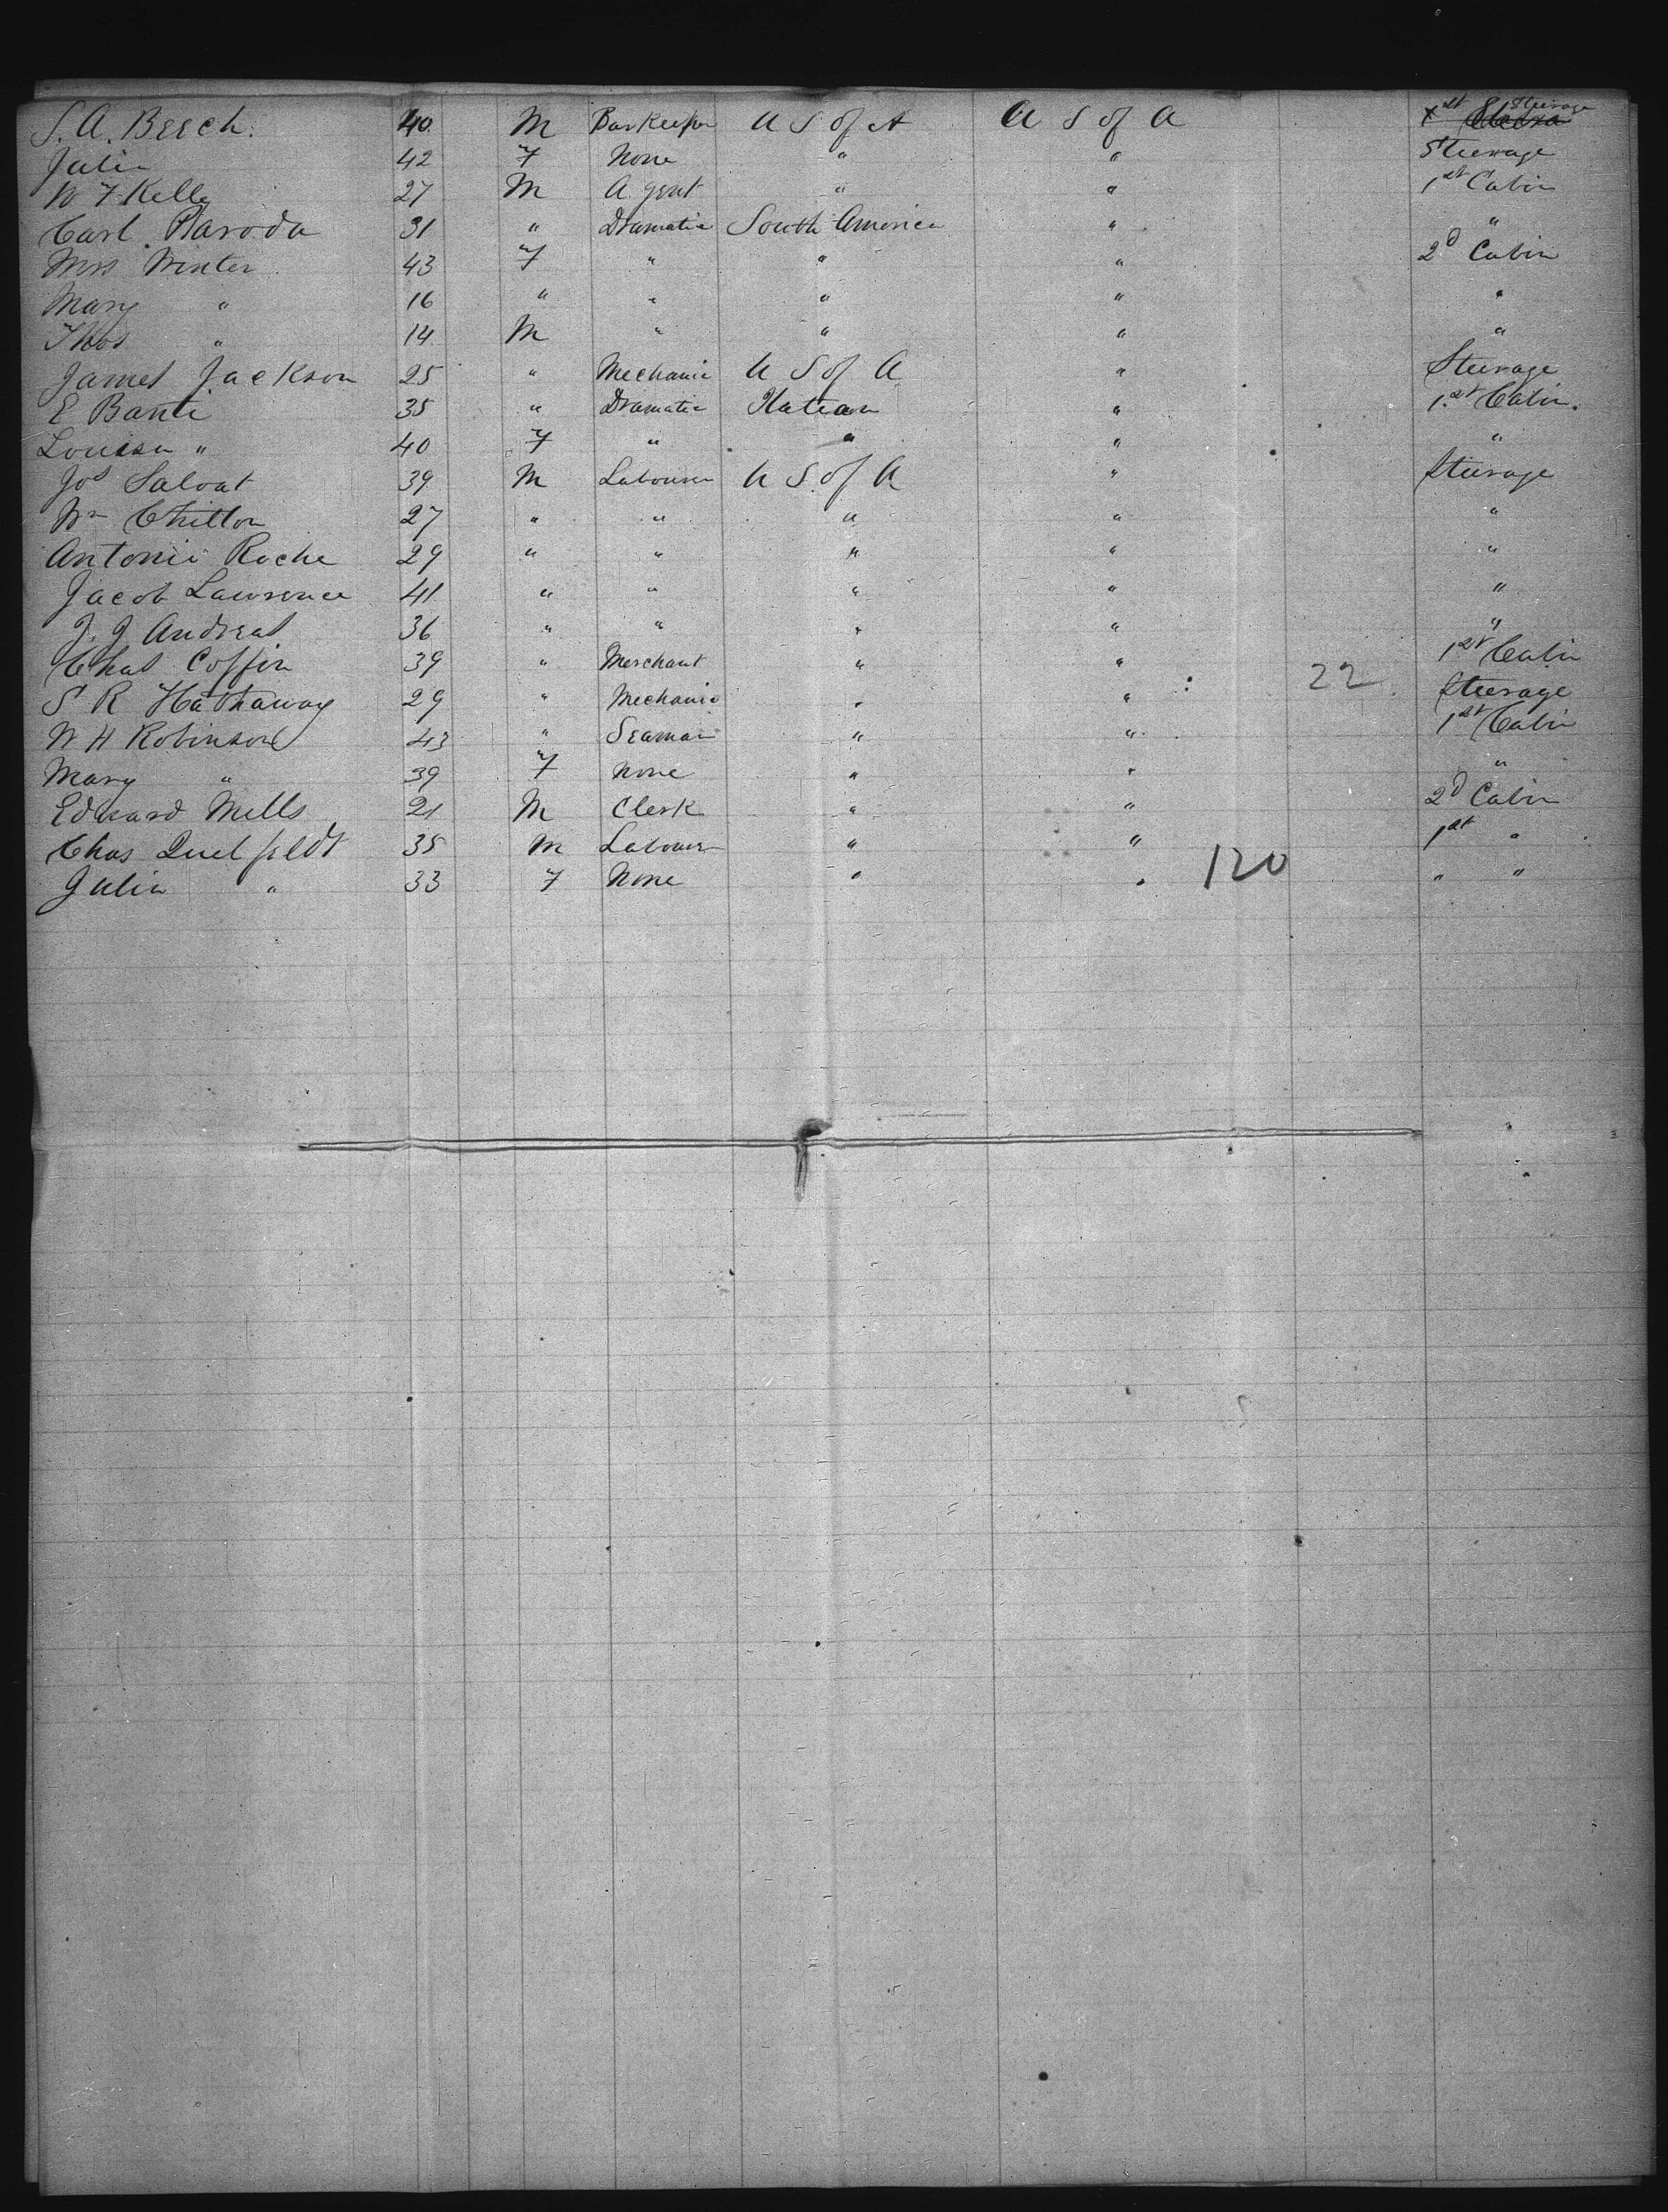 S. A. Beech. 40 M Barkeeper U S of A U S of A 1st Steerage
Julia 42 F None " " Steerage
W F Kelly 27 M Agent " " 1st Cabin
Carl Paroda 31 " Dramatic South America " "
Mrs Winter 43 F " " " 2d Cabin
Mary " 16 " " " " "
Thos " 14 M " " " "
James Jackson 25 " Mechanic U S of A " Steerage
E Banti 35 " Dramatic Italian " 1st Cabin.
Louisa " 40 F " " " "
Jos Salvat 39 M Labourer U S. of A " Steerage
Wm Chitton 27 " " " " "
Antonii Roche 29 " " " " "
Jacob Lawrence 41 " " " " "
J. J Andreas 36 " " " " "
Chas Coffin 39 " Merchant " " 1st Cabin
S R Hathaway 29 " Mechanic " " 22 Steerage
W H Robinson 43 " Seaman " " 1st Cabin
Mary " 39 F None " " "
Edward Mells 21 M Clerk " " 2d Cabin
Chas Quelfeldt 35 M Labourer " " 1st "
Julia " 33 F None " " 120 " "